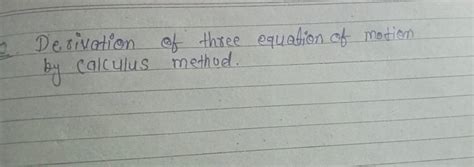 Derivation of three equation of motion
by calculus method.